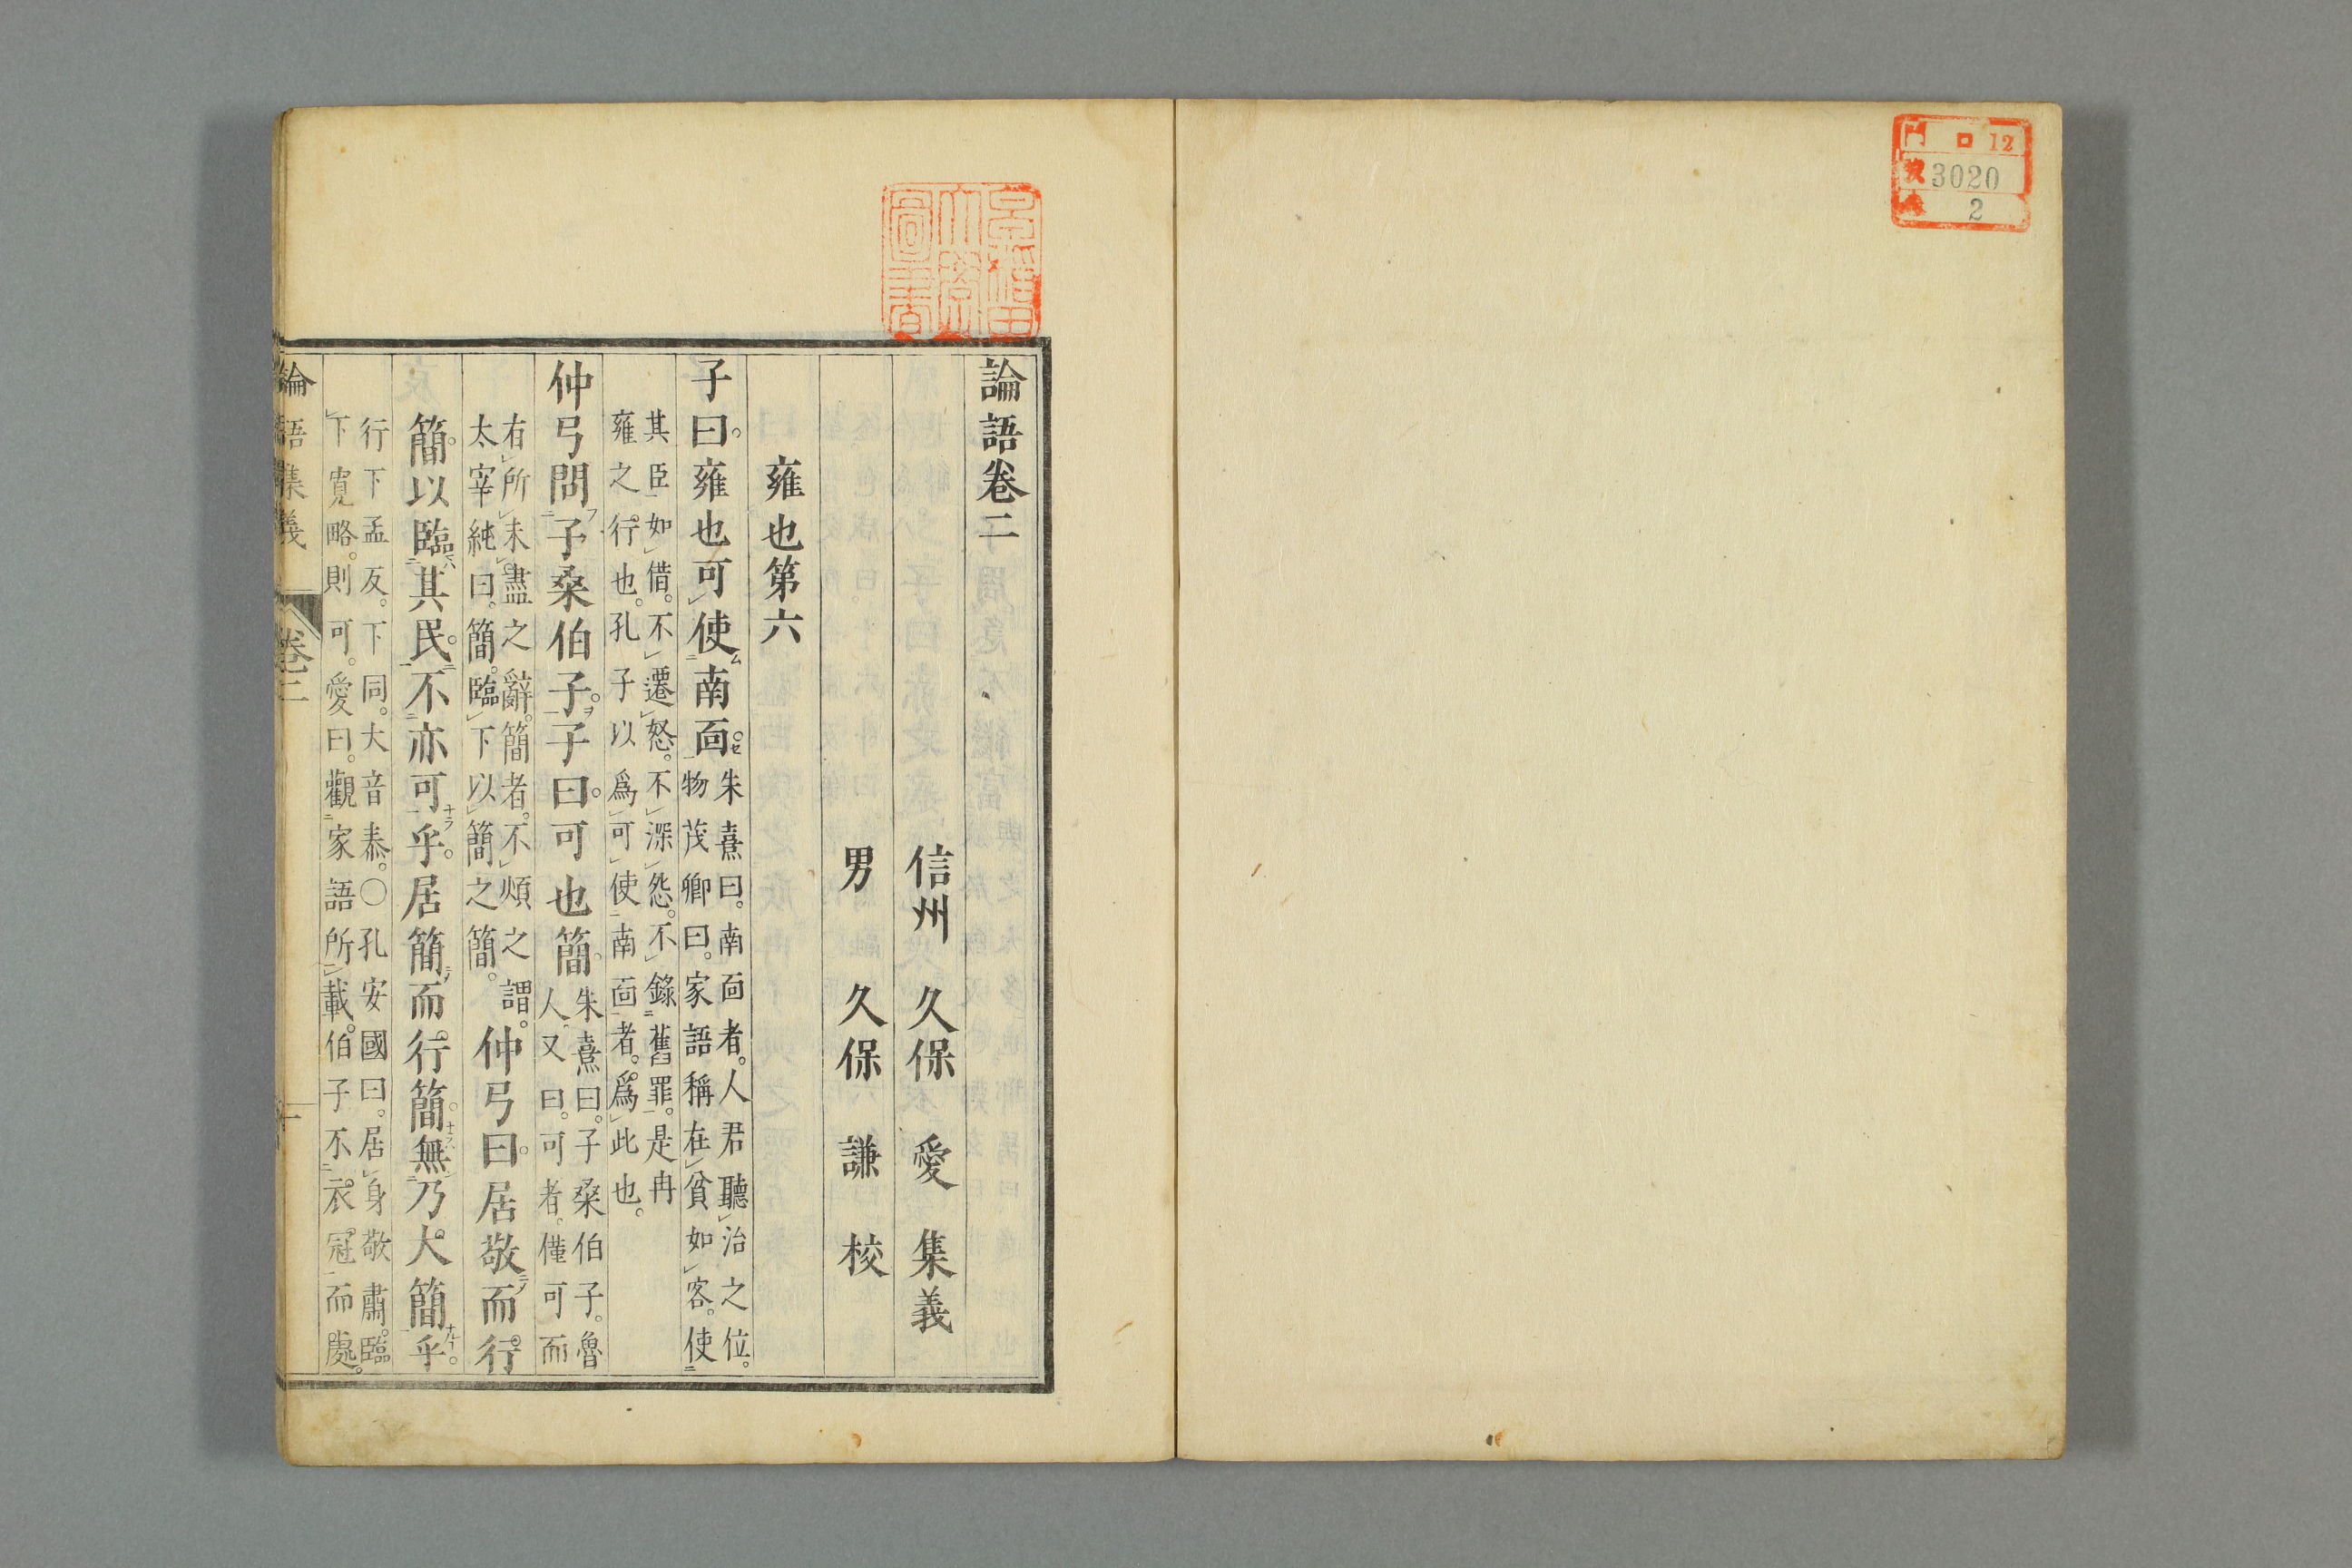 門 ロ 12
號 3020
卷 2
早稲田
大學
圖書
論語卷二
信州 久保 愛 集義
男 久保 謙 校
雍也第六
子曰。雍也可使南面。朱熹曰。南面者。人君聽治之位。
物茂卿曰。家語稱在貧如客。使
其臣如借。不遷怒。不深怨。不錄舊罪。是冉
雍之行也。孔子以爲可使南面者。爲此也。
仲弓問子桑伯子。子曰。可也簡。朱熹曰。子桑伯子。魯
人。又曰。可者。僅可而
有所未盡之辭。簡者。不煩之謂。仲弓曰。居敬而行
太宰純曰。簡。臨下以簡之簡。
簡。以臨其民。不亦可乎。居簡而行簡。無乃大簡乎。
行下孟反。下同。大音泰。〇孔安國曰。居身敬肅。臨
下寬略。則可。愛曰。觀家語所載。伯子不衣冠而處。
論語集義 卷二 一